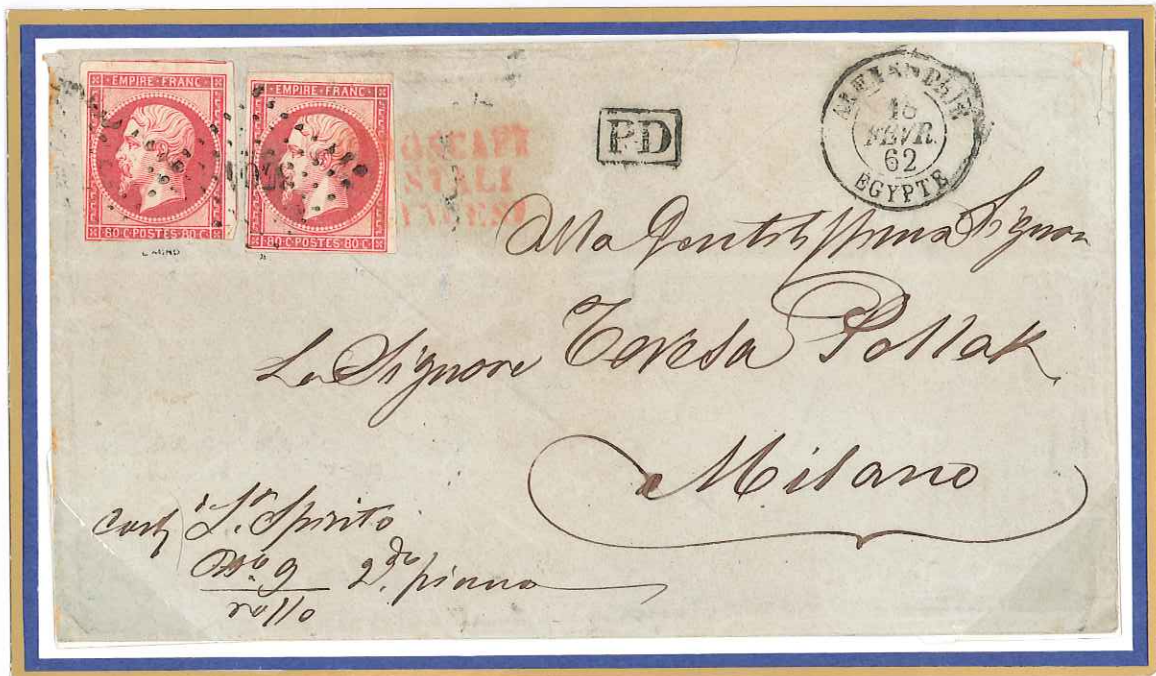 EMPIRE·FRANC
80 C·POSTES·80 C
EMPIRE·FRANC
80 C·POSTES·80 C
PD
ALEXANDRIE
FÉVR.
62
EGYPTE
Alla Gentilissima Signora
La Signora Teresa Pollak
Milano
S. Spirito
No. 9 2do piano